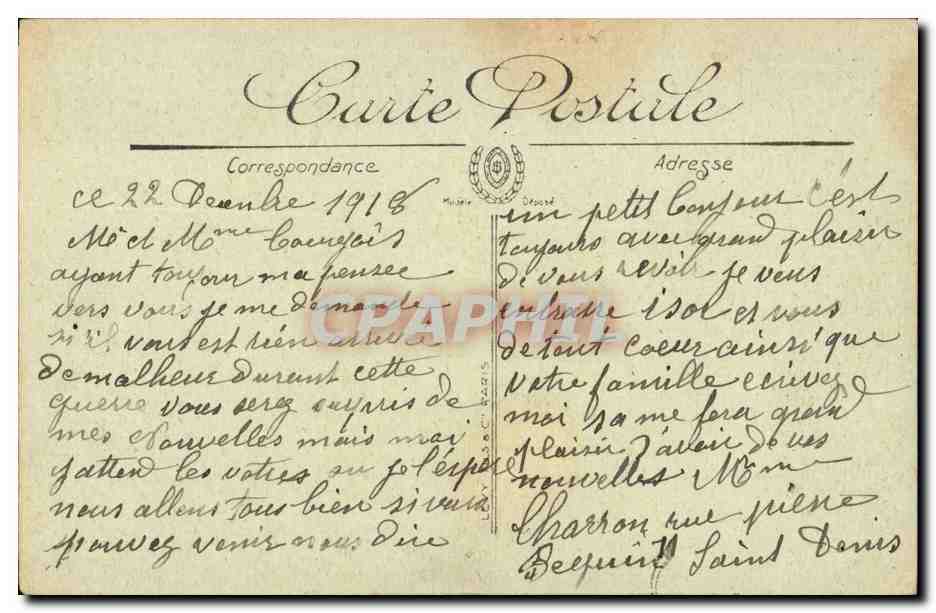 Carte Postale
Correspondance
Adresse
Modèle Déposé
ce 22 Decenbre 1918
Mr et Mme Bourgois
ayant toujour ma pensee
vers vous je me demande
si il vous est rien arrivé
de malheur durant cette
guerre vous serez surpris de
mes Nouvelles mais moi
j'attend les votres ou je l'éspere
nous allons tous bien si vous
pouvez venir nous dire
un petit bonjour c'est
toujours avec grand plaisir
de vous revoir je vous
enbrasse et vous
de tout coeur ainsi que
votre famille ecrivez
moi sa me fera grand
plaisir d'avoir de vos
nouvelles Mme
Charron rue pierre
Bequin 11 Saint Denis
LEVY PARIS
CPAPHIL